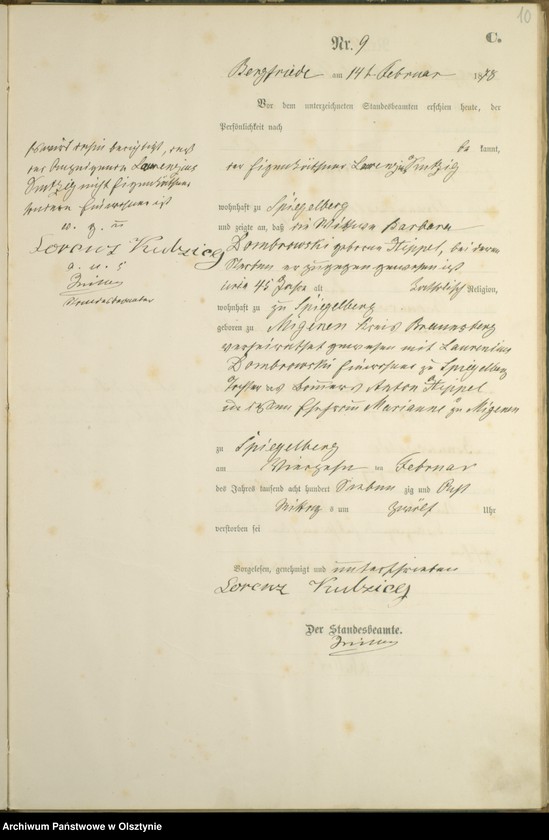 10
C.
Nr. 9
Bergfriede am 14t Februar 1878
Vor dem unterzeichneten Standesbeamten erschien heute, der
Persönlichkeit nach
be kannt,
der Eigenkäthner
wohnhaft zu Spiegelberg
und zeigte an, daß die Wittwe Barbara
Dombrowski geborne Hippel, bei deren
Sterben er zugegen gewesen ist
45 Jahre alt Katholisch Religion,
wohnhaft zu zu Spiegelberg
geboren zu Migenen Kreis Braunsberg
verheirathet gewesen mit Laurenius
Dombrowski Einwohner zu Spiegelberg
Tochter des Anton Hippel
Ehefrau Marianne zu Migenen
zu Spiegelberg
am Vierzehn ten Februar
des Jahres tausend acht hundert Sieben zig und Acht
Mittag s um zwölf Uhr
verstorben sei
Vorgelesen, genehmigt und unterschrieben
Lorenz Kudzieg
Der Standesbeamte.
berichtet, daß
der Anzeigende
nicht Eigenkäthner
sondern Einwohner ist
v. g. u.
Lorenz Kudzieg
a. u. s.
Standesbeamter
Archiwum Państwowe w Olsztynie